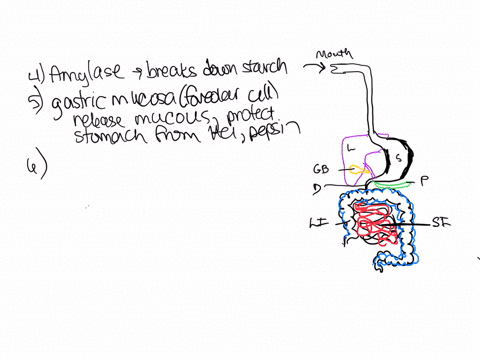 4) Amylase → breaks down starch
5) gastric mucosa (foveolar cell)
release mucous, protect
stomach from HCl, pepsin
6)
Mouth
L
S
GB
D
P
LI
SI